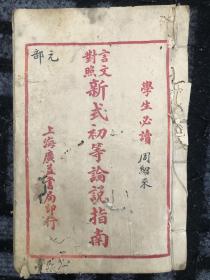 學生必讀
周紹泉
言文對照
新式初等論說指南
上海廣益書局印行
元部